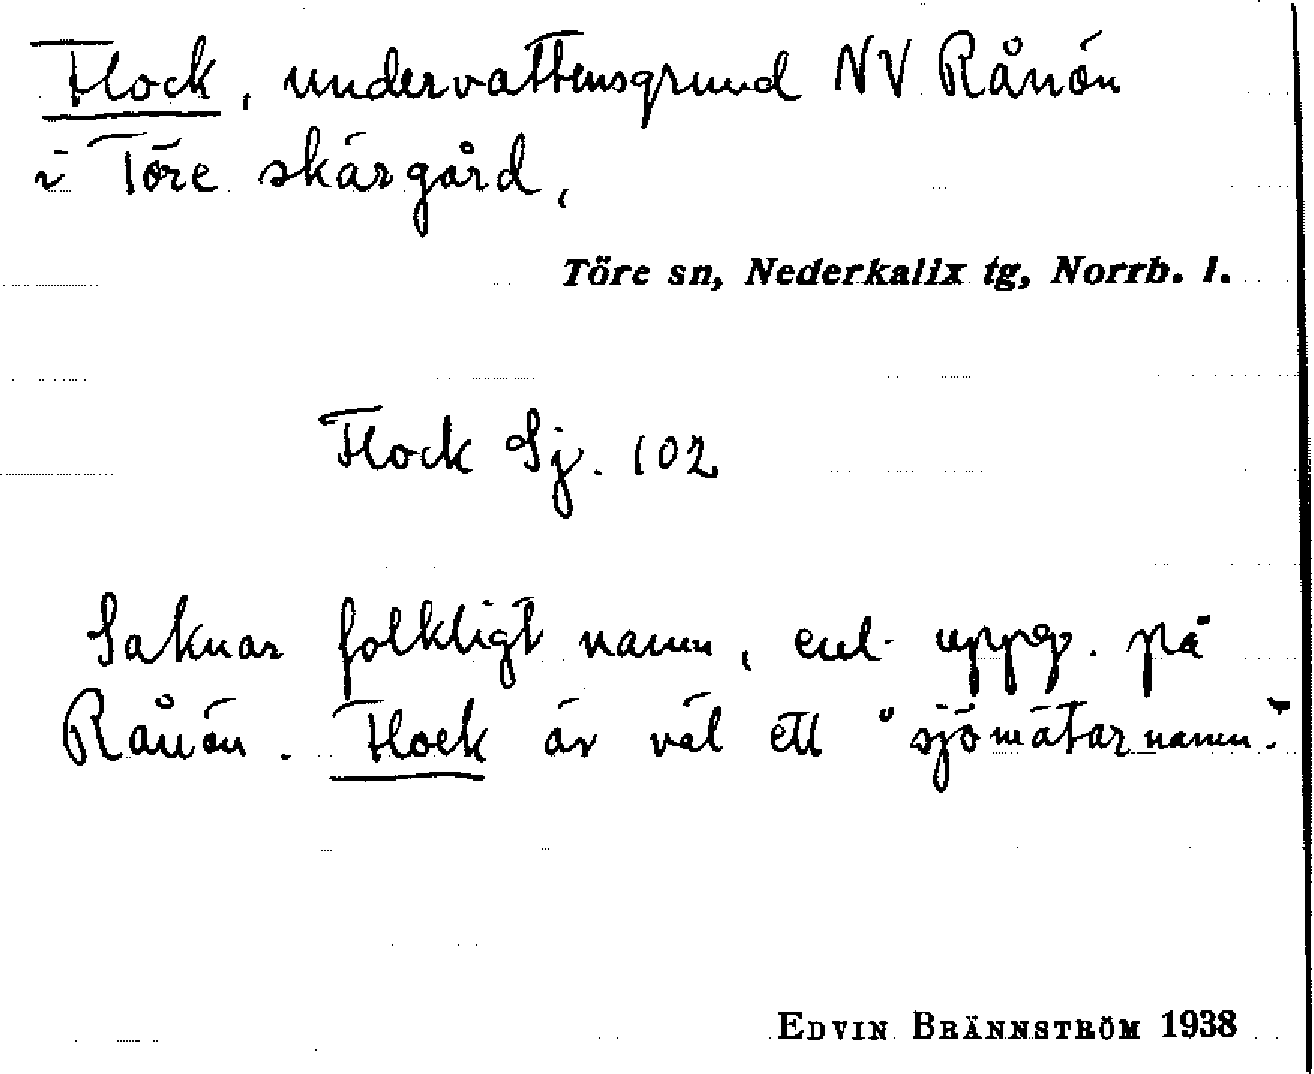 Flock, undervattensgrund NV Rånön
i Töre skärgård,
Töre sn, Nederkalix tg, Norrb. l.
Flock Sj. 102
Saknar folkligt namn, enl. uppg. på
Rånön. Flock är väl ett "sjömätarnamn".
EDVIN BRÄNNSTRÖM 1938